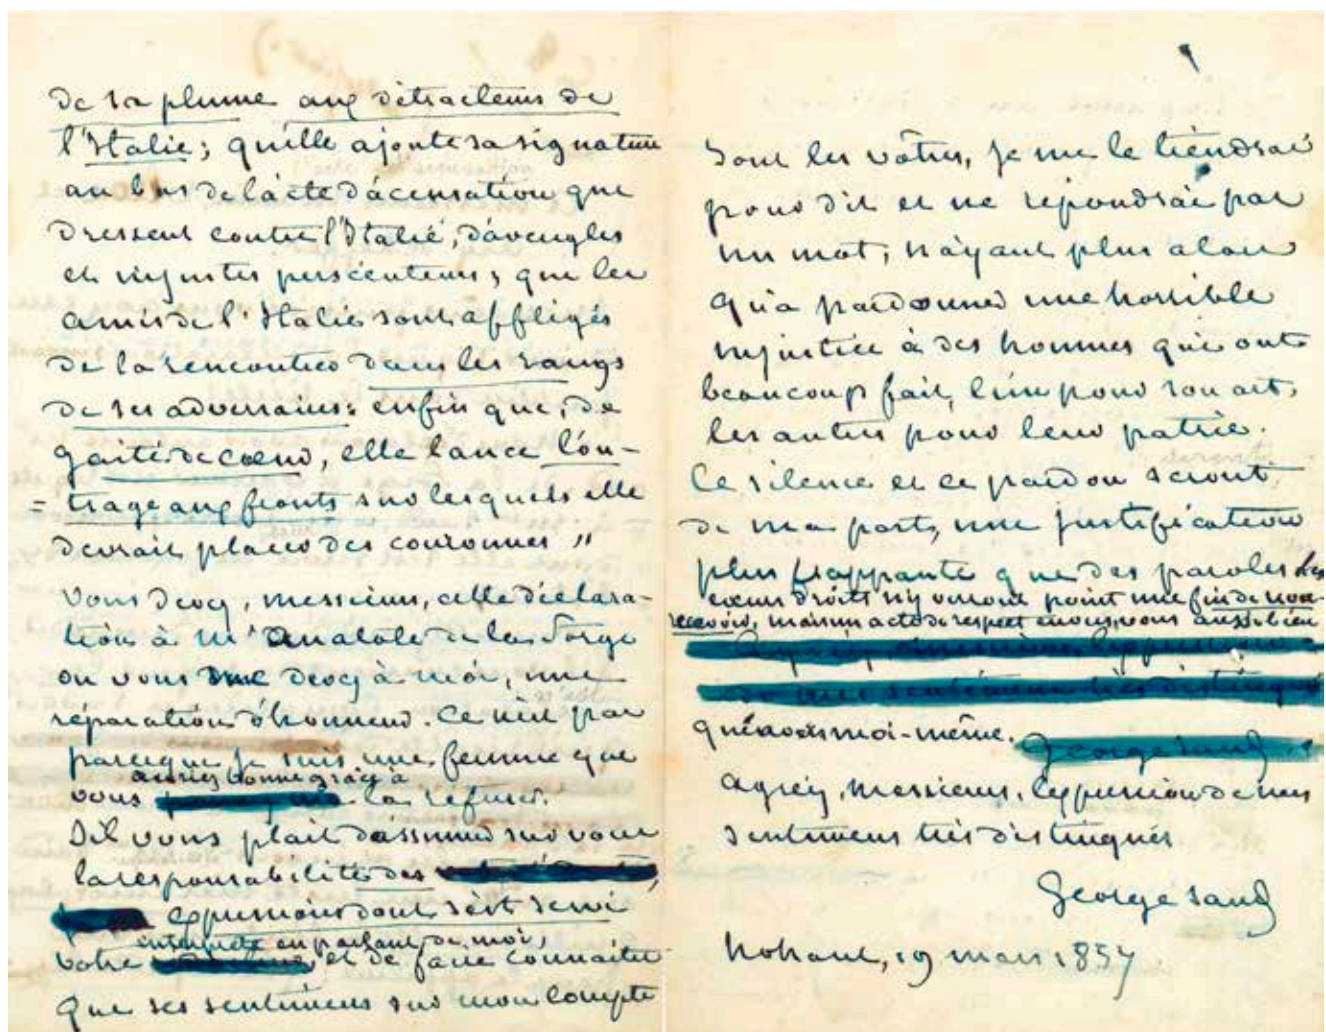 de sa plume aux détracteurs de
l'Italie; qu'elle ajoute sa signature
au bas de l'acte d'accusation que
dressent contre l'Italie, d'aveugles
et injustes persécuteurs; que les
amis de l'Italie sont affligés
de la rencontrer dans les rangs
de ses adversaires: enfin que, de
gaité de cœur, elle lance l'ou-
= trage aux fronts sur lesquels elle
devrait placer des couronnes "
Vous devez, messieurs, cette déclara-
tion à Mr Anatole de la Forge
ou vous me devez à moi, une
réparation d'honneur. Ce n'est pas
parceque je suis une femme que
vous auriez bonne grâce à la refuser.
S'il vous plait d'assumer sur vous
la responsabilité des
expressions dont s'est servi
votre interprète en parlant de moi, et de faire connaître
que ses sentimens sur mon compte
sont les vôtres, je me le tiendrai
pour dit et ne répondrai pas
un mot, n'ayant plus alors
qu'à pardonner une horrible
injustice à des hommes qui ont
beaucoup fait, l'un pour son art,
les autres pour leur patrie.
Ce silence et ce pardon seront,
de ma part, une justification
plus frappante que des paroles. Les
cœurs droits n'y verront point une fin de non-
recevoir, mais un acte de respect envers vous aussi bien
Agréez, messieurs, l'expression
de mes sentimens très distingués
qu'envers moi-même.
George Sand
agréez, messieurs, l'expression de mes
sentimens très distingués
George Sand
Nohant, 19 mars 1857